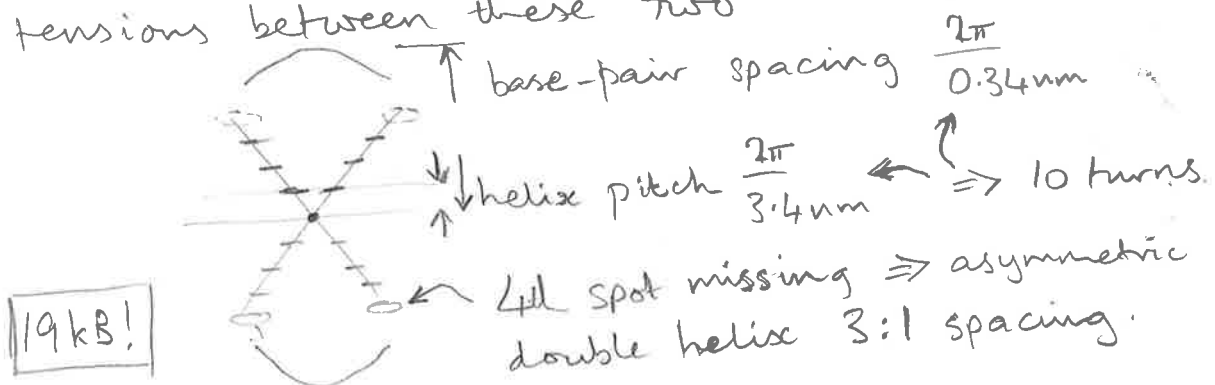 tensions between these two
base-pair spacing 2π/0.34nm
helix pitch 2π/3.4nm ⇒ 10 turns.
4th spot missing ⇒ asymmetric
double helix 3:1 spacing.
19kB!